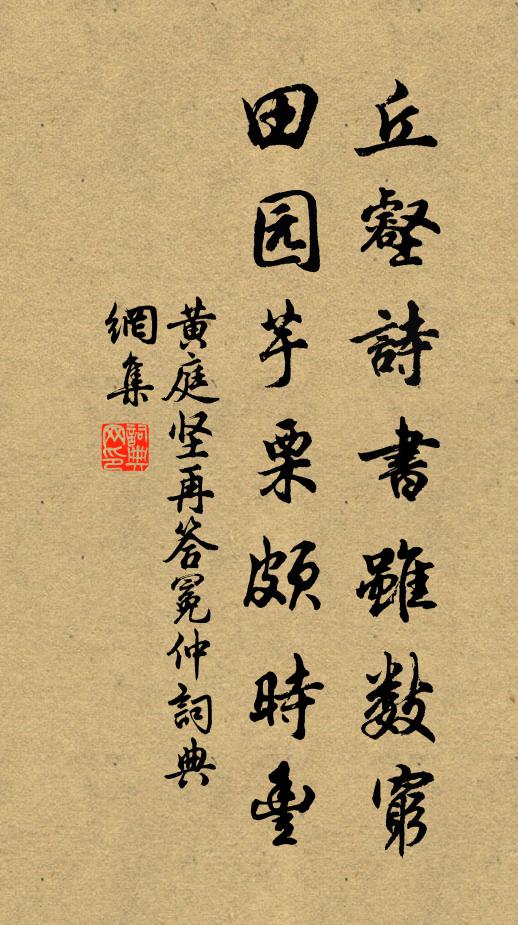 丘壑詩書雖数窮
田园芋栗颇時豊
黄庭坚再答冕仲詞典
網集
詞典网印